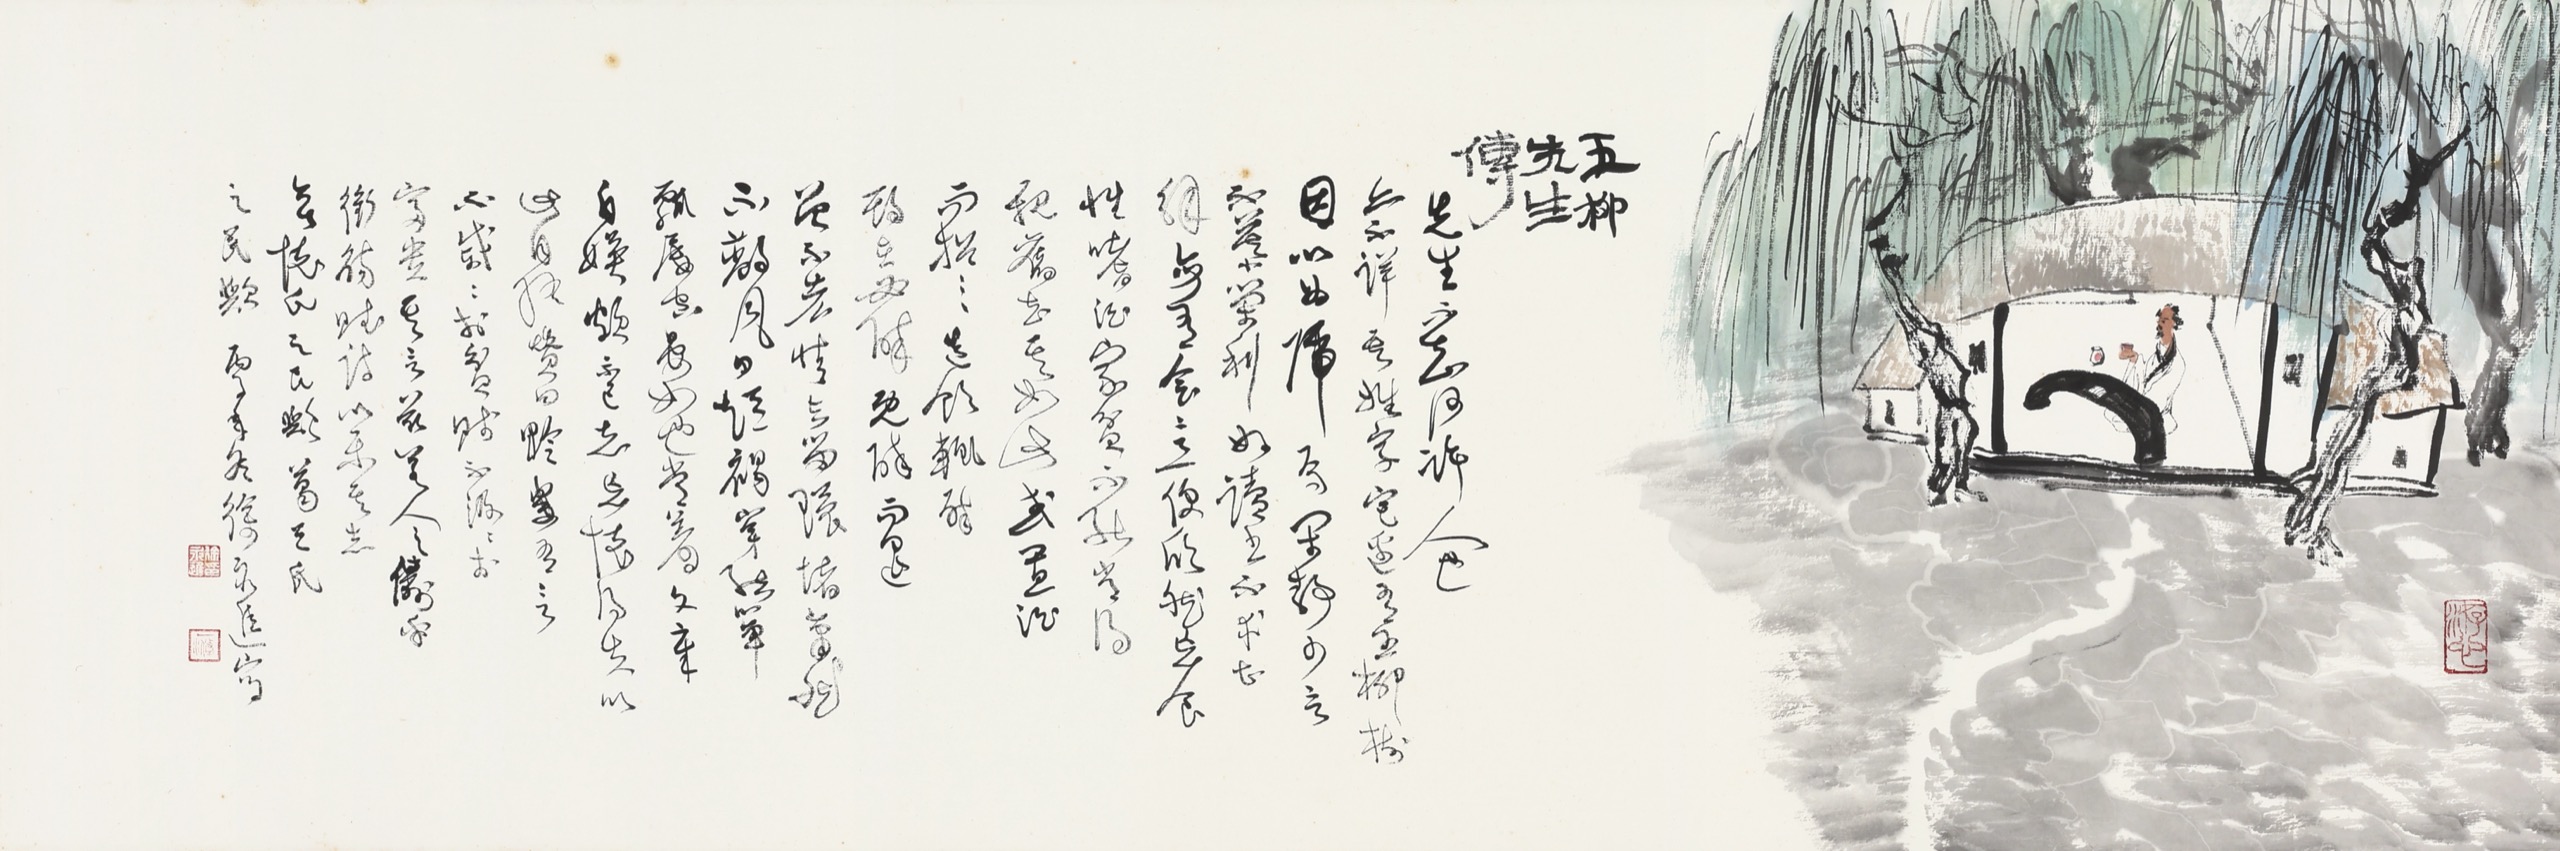 五柳
先生
傳
先生不知何許人也
亦不詳其姓字宅邊有五柳樹
因以為號焉閑靜少言
不慕榮利好讀書不求甚
解每有會意便欣然忘食
性嗜酒家貧不能常得
親舊知其如此或置酒
而招之造飲輒醉
期在必醉既醉而退
曾不吝情去留環堵蕭然
不蔽風日短褐穿結簞
瓢屢空晏如也常著文章
自娛頗示己志忘懷得失以
此自終贊曰黔婁有言
不戚〻於貧賤不汲〻於
富貴其言茲若人之儔乎
銜觴賦詩以樂其志
無懷氏之民歟葛天氏
之民歟 年冬徐永進寫
游心